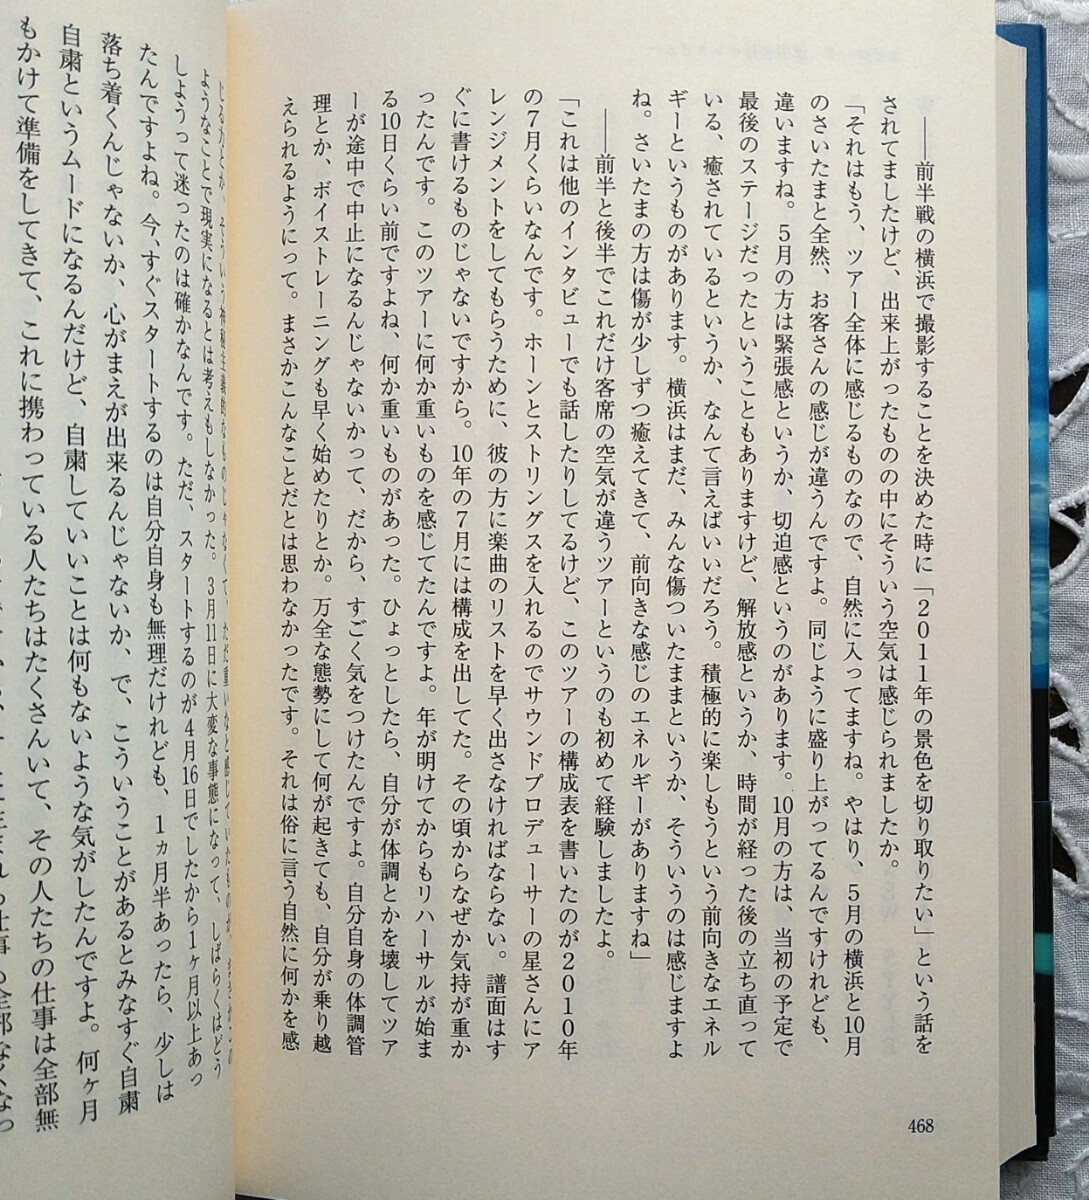 ――前半戦の横浜で撮影することを決めた時に「２０１１年の景色を切り取りたい」という話を
されてましたけど、出来上がったものの中にそういう空気は感じられましたか。
「それはもう、ツアー全体に感じるものなので、自然に入ってますね。やはり、５月の横浜と10月
のさいたまと全然、お客さんの感じが違うんですよ。同じように盛り上がってるんですけれども、
違いますね。５月の方は緊張感というか、切迫感というのがあります。10月の方は、当初の予定で
最後のステージだったということもありますけど、解放感というか、時間が経った後の立ち直って
いる、癒されているというか、なんて言えばいいだろう。積極的に楽しもうという前向きなエネル
ギーというものがあります。横浜はまだ、みんな傷ついたままというか、そういうのは感じますよ
ね。さいたまの方は傷が少しずつ癒えてきて、前向きな感じのエネルギーがありますね」
――前半と後半でこれだけ客席の空気が違うツアーというのも初めて経験しましたよ。
「これは他のインタビューでも話したりしてるけど、このツアーの構成表を書いたのが２０１０年
の７月くらいなんです。ホーンとストリングスを入れるのでサウンドプロデューサーの星さんにア
レンジメントをしてもらうために、彼の方に楽曲のリストを早く出さなければならない。譜面はす
ぐに書けるものじゃないですから。10年の７月には構成を出してた。その頃からなぜか気持が重か
ったんです。このツアーに何か重いものを感じてたんですよ。年が明けてからもリハーサルが始ま
る10日くらい前ですよね、何か重いものがあった。ひょっとしたら、自分が体調とかを壊してツア
ーが途中で中止になるんじゃないかって、だから、すごく気をつけたんですよ。自分自身の体調管
理とか、ボイストレーニングも早く始めたりとか。万全な態勢にして何が起きても、自分が乗り越
えられるようにって。まさかこんなことだとは思わなかったです。それは俗に言う自然に何かを感
468
じるかとか、そういう神秘主義的なものじゃなくて、ただ重いなと感じていたものが、
ようなことで現実になるとは考えもしなかった。３月11日に大変な事態になって、しばらくはどう
しようって迷ったのは確かなんです。ただ、スタートするのが４月16日でしたから１ヶ月以上あっ
たんですよね。今、すぐスタートするのは自分自身も無理だけれども、１ヵ月半あったら、少しは
落ち着くんじゃないか、心がまえが出来るんじゃないか、で、こういうことがあるとみなすぐ自粛
自粛というムードになるんだけど、自粛していいことは何もないような気がしたんですよ。何ヶ月
もかけて準備をしてきて、これに携わっている人たちはたくさんいて、その人たちの仕事は全部無